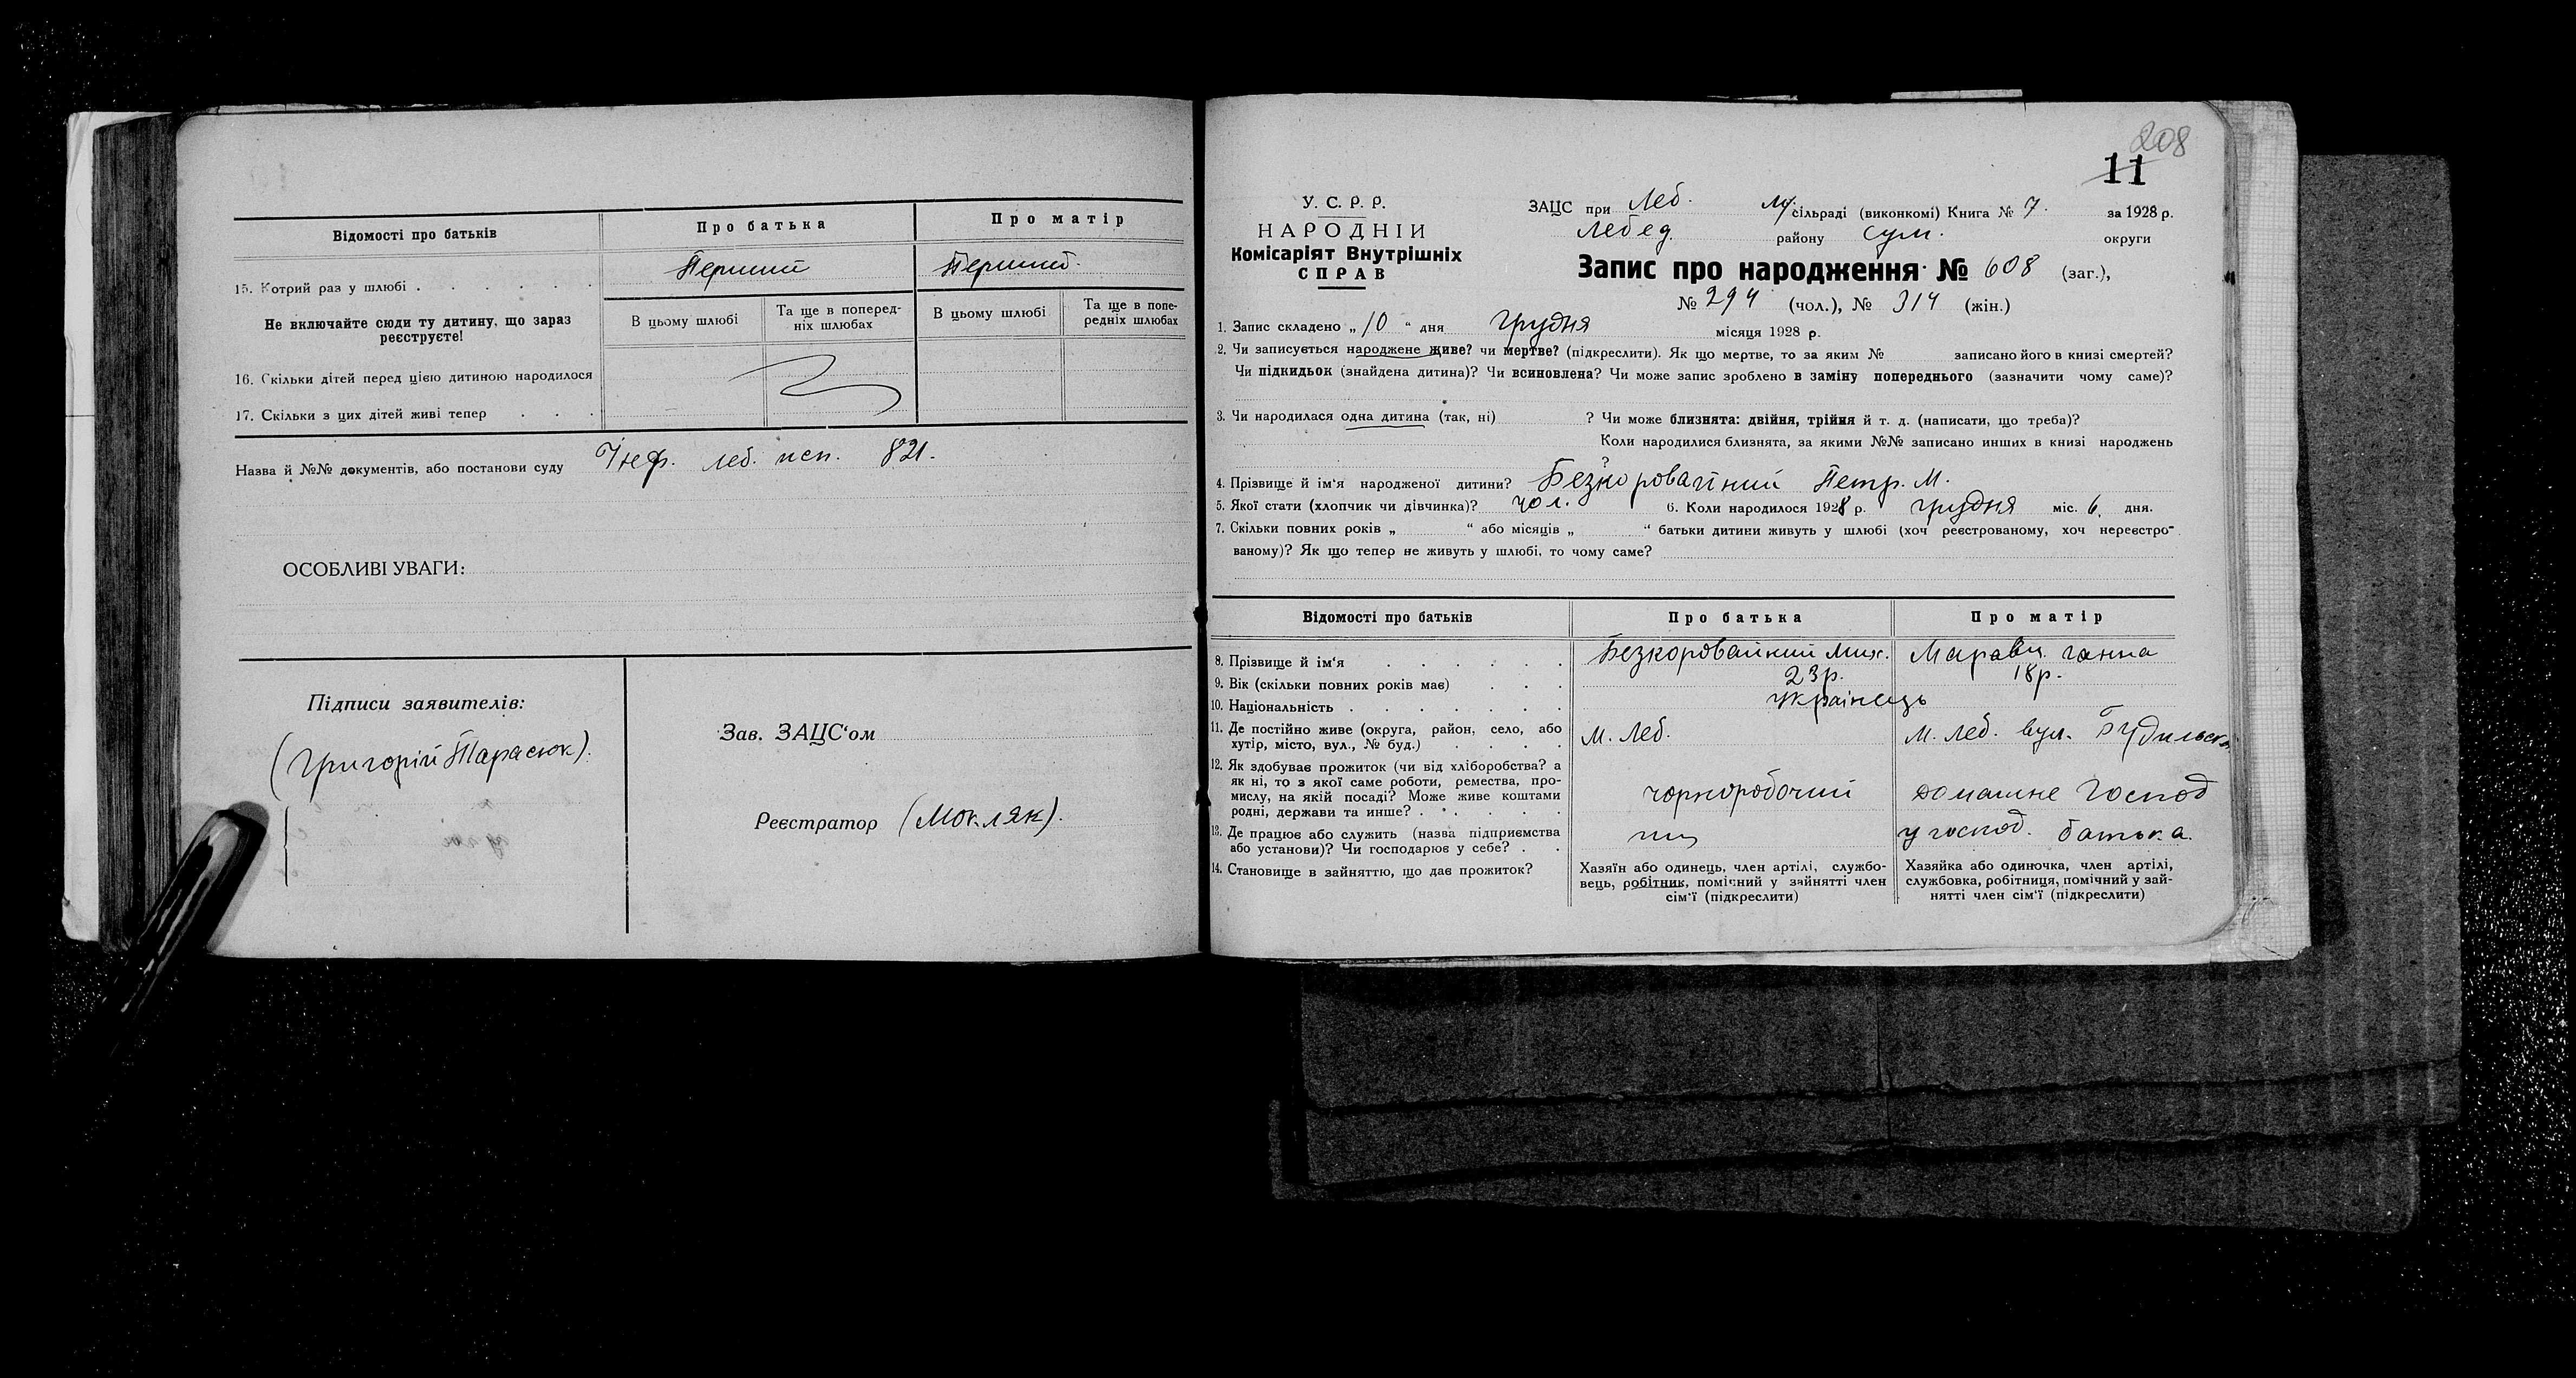 Відомості про батьків
Про батька
Про матір
15. Котрий раз у шлюбі
Перший
Перший.
Не включайте сюди ту дитину, що зараз
реєструєте!
В цьому шлюбі
Та ще в поперед-
ніх шлюбах
В цьому шлюбі
Та ще в попе-
редніх шлюбах
16. Скільки дітей перед цією дитиною народилося
17. Скільки з цих дітей живі тепер
Назва й №№ документів, або постанови суду леб. 821.
ОСОБЛИВІ УВАГИ:
Підписи заявителів:
(Григорій Тарасюк).
Зав. ЗАЦС'ом
Реєстратор (Мокляк).
208
11
У. С. Р. Р.
НАРОДНІЙ
Комісаріят Внутрішніх
СПРАВ
ЗАЦС при Леб. сільраді (виконкомі) Книга № 7. за 1928 р.
Лебед. району Сум. округи
Запис про народження № 608 (заг.),
№ 294 (чол.), № 314 (жін.)
1. Запис складено „10“ дня грудня місяця 1928 р.
2. Чи записується народжене живе? чи мертве? (підкреслити). Як що мертве, то за яким № записано його в книзі смертей?
Чи підкидьок (знайдена дитина)? Чи всиновлена? Чи може запис зроблено в заміну попереднього (зазначити чому саме)?
3. Чи народилася одна дитина (так, ні) ? Чи може близнята: двійня, трійня й т. д. (написати, що треба)?
Коли народилися близнята, за якими №№ записано инших в книзі народжень
?
4. Прізвище й ім'я народженої дитини? Безкоровайний Петр. М.
5. Якої стати (хлопчик чи дівчинка)? чол. 6. Коли народилося 1928 р. грудня міс. 6 дня.
7. Скільки повних років „ “ або місяців „ “ батьки дитини живуть у шлюбі (хоч реєстрованому, хоч нереєстро-
ваному)? Як що тепер не живуть у шлюбі, то чому саме?
Відомості про батьків
Про батька
Про матір
8. Прізвище й ім'я
Безкоровайний Мих.
Ганна
9. Вік (скільки повних років має)
23р.
18р.
10. Національність
українець
11. Де постійно живе (округа, район, село, або
хутір, місто, вул., № буд.)
м. Леб.
м. Леб. вул. Будильськ
12. Як здобуває прожиток (чи від хліборобства? а
як ні, то з якої саме роботи, ремества, про-
мислу, на якій посаді? Може живе коштами
родні, держави та инше?
чорноробочий
домашнє господ
13. Де працює або служить (назва підприємства
або установи)? Чи господарює у себе?
у господ. батька.
14. Становище в зайняттю, що дає прожиток?
Хазяїн або одинець, член артілі, службо-
вець, робітник, помічний у зайнятті член
сім'ї (підкреслити)
Хазяйка або одиночка, член артілі,
службовка, робітниця, помічний у зай-
нятті член сім'ї (підкреслити)